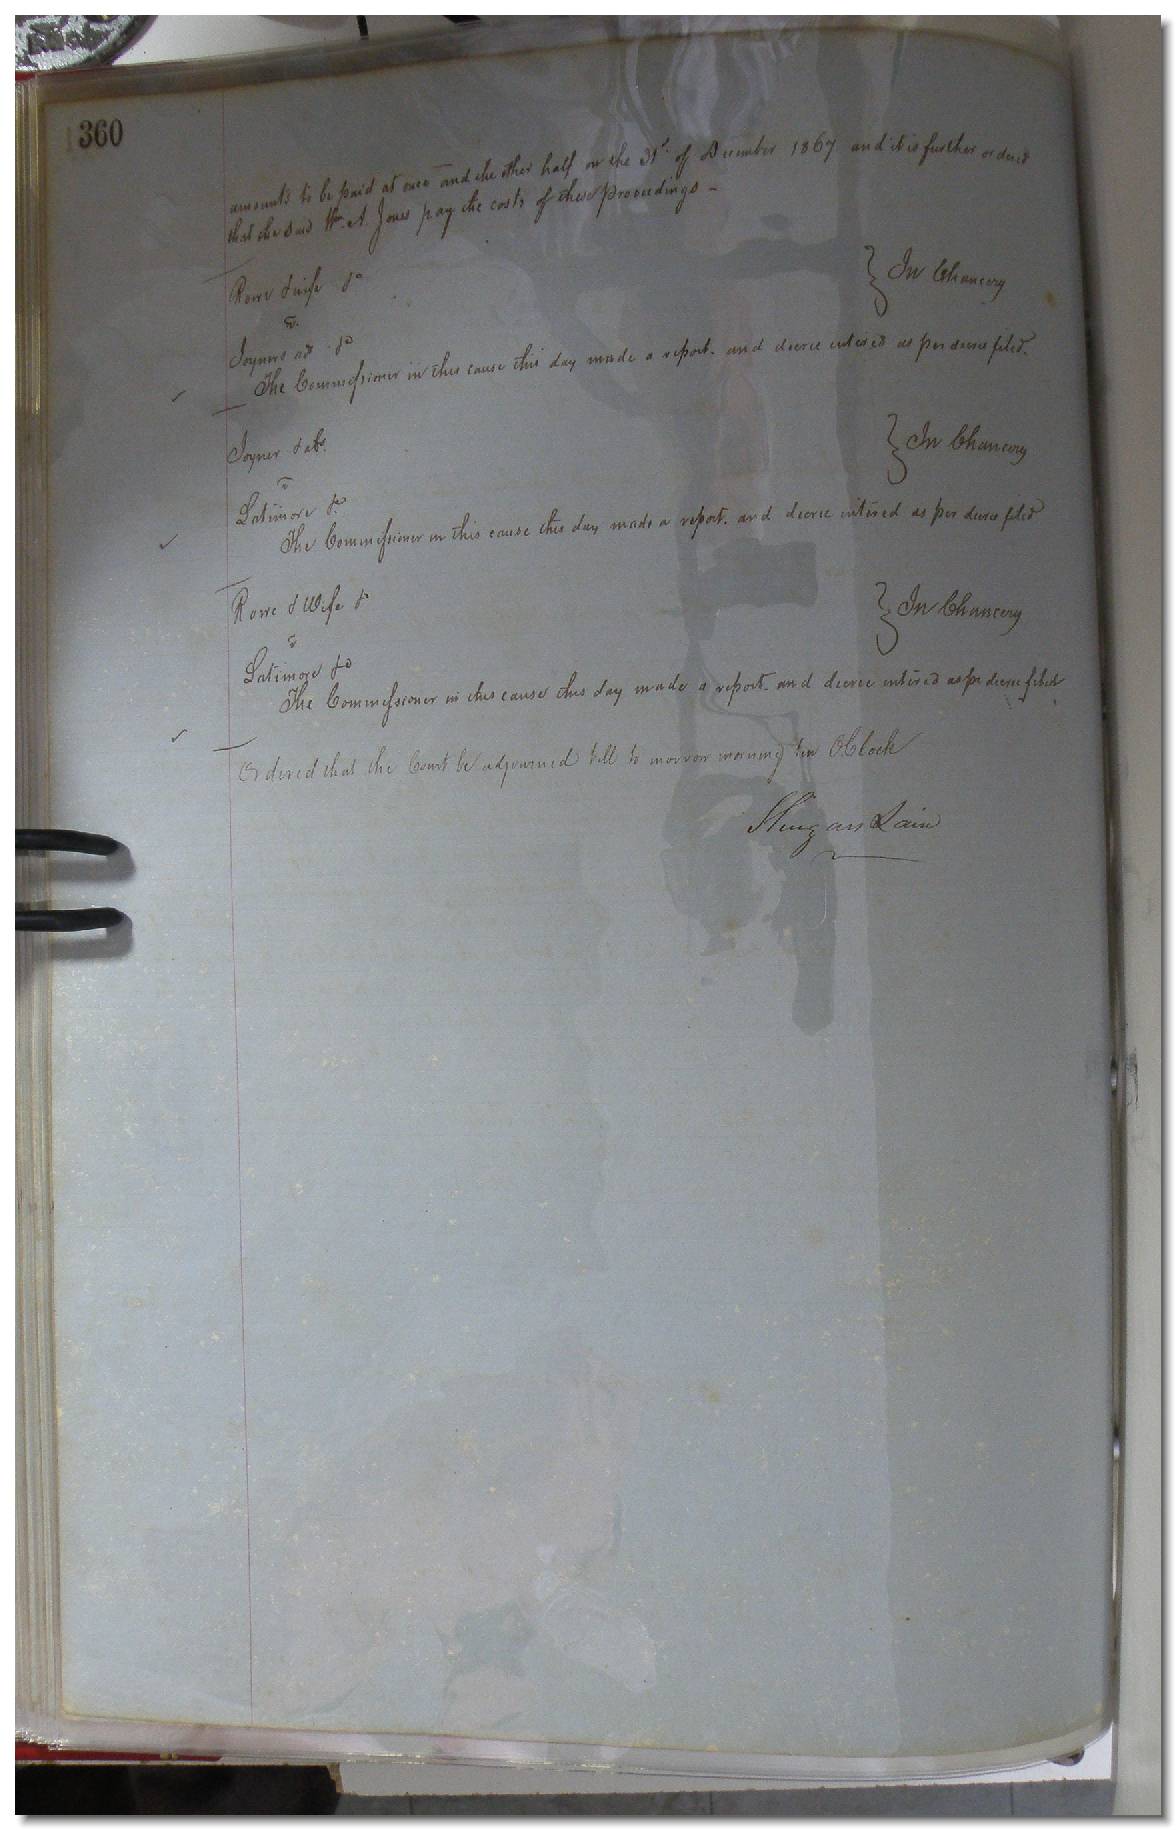 360
amounts to be paid at once and the other half on the 31st of December 1867 and it is further ordered
that the said Wm. A. Jones pay the costs of these proceedings -
Rowe & wife &c
vs.
Joyners ad &c
In Chancery
The Commissioner in this cause this day made a report. and decree entered as per decree filed.
Joyner & als.
vs
Latimore &c.
In Chancery
The Commissioner in this cause this day made a report. and decree entered as per decree filed
Rowe & Wife &
vs
Latimore &c
In Chancery
The Commissioner in this cause this day made a report. and decree entered as per decree filed
Ordered that the Court be adjourned till to morrow morning ten OClock
Lain